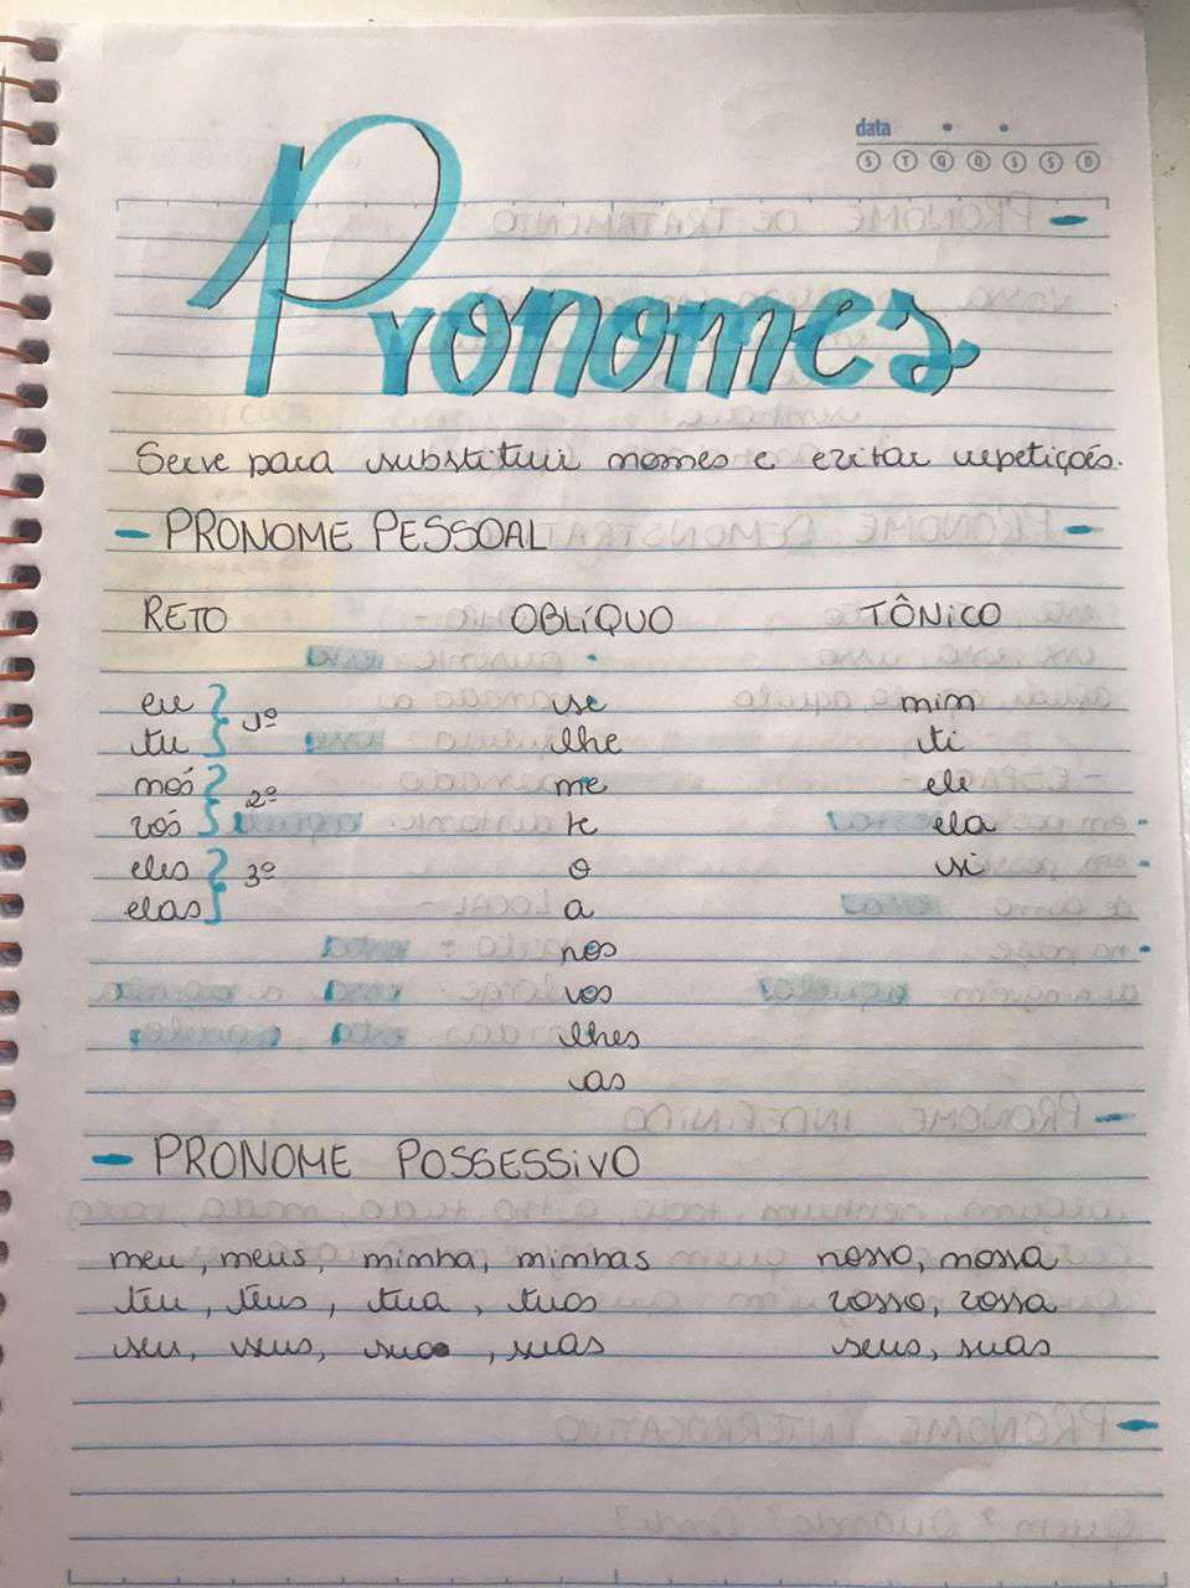 data
S T Q Q S S D
Pronomes
Serve para substituir nomes e evitar repetiçoẽs.
- PRONOME PESSOAL
RETO OBLÍQUO TÔNICO
eu 1º se mim
tu lhe ti
nós 2º me ele
vós te ela
eles 3º o si
elas a
nos
vos
lhes
as
- PRONOME POSSESSIVO
meu, meus, minha, minhas nosso, nossa
teu, teus, tua, tuas vosso, vossa
seu, seus, sua, suas seus, suas